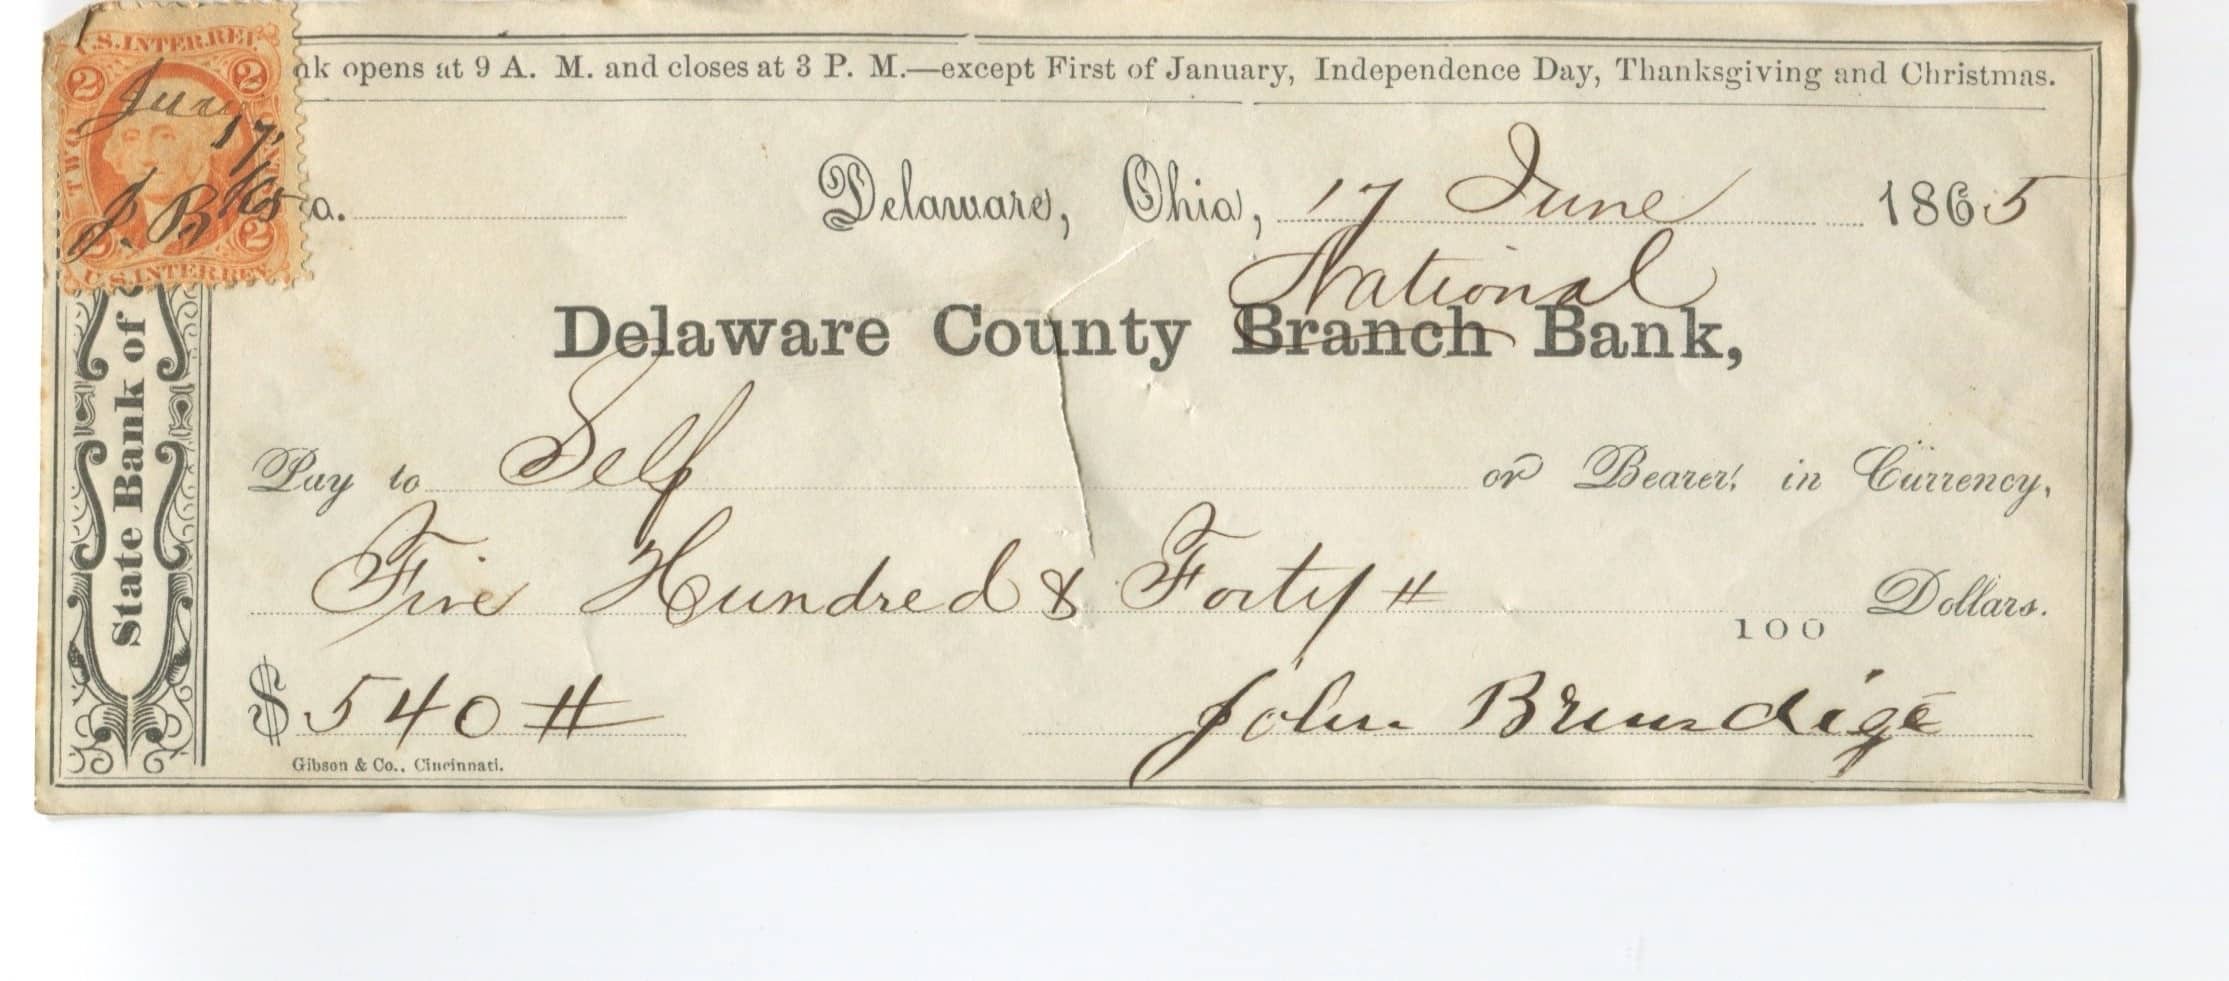 U.S. INTER. REV.
2 2
TWO
June
17
/65
J. B
2 2
U.S. INTER. REV.
nk opens at 9 A. M. and closes at 3 P. M.—except First of January, Independence Day, Thanksgiving and Christmas.
o. Delaware, Ohio, 17 June 1865
National
Delaware County Branch Bank,
Pay to Self or Bearer, in Currency,
Five Hundred & Forty # Dollars.
100
$ 540 # John Brundige
Gibson & Co., Cincinnati.
State Bank of